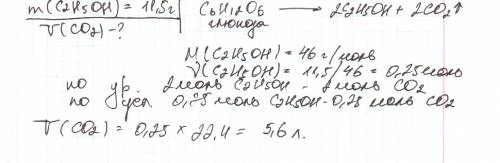 m(C2H5OH) = 11,5г
V(CO2) - ?
C6H12O6 → 2C2H5OH + 2CO2↑
глюкоза
M(C2H5OH) = 46 г/моль
V(C2H5OH) = 11,5/46 = 0,25 моль
по ур. 2моль C2H5OH - 2моль CO2
по усл. 0,25 моль C2H5OH - 0,25 моль CO2
V(CO2) = 0,25 × 22,4 = 5,6 л.